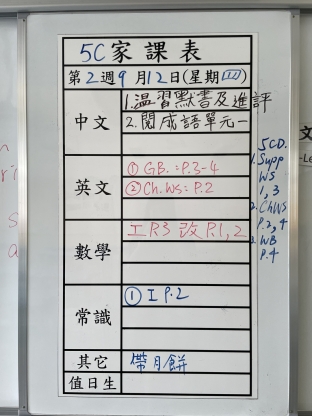 5C家課表
第2週9月12日(星期四)
中文
1.溫習默書及進評
2.閱成語單元一
英文
① GB.:P.3-4
② Ch.Ws:P.2
數學
工P.3 改P.1,2
常識
① 工P.2
其它
帶月餅
值日生
5CD.
1. Supp
WS
1,3
2. ChWS
P.2,4
3. WB
P.4